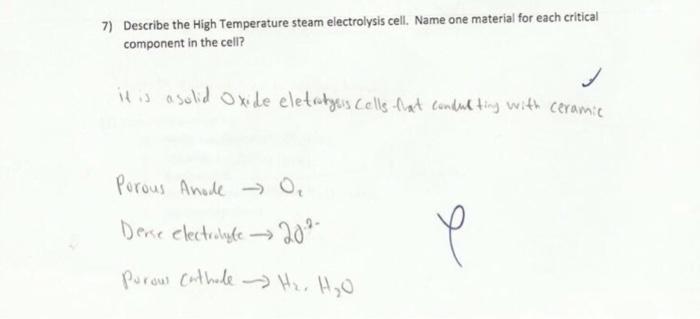 7) Describe the High Temperature steam electrolysis cell. Name one material for each critical
component in the cell?
it is a solid Oxide eletrolysis cells that conducting with ceramic
Porous Anode → O₂
Dense electrolyte → 2O²⁻
Porous Cathode → H₂, H₂O